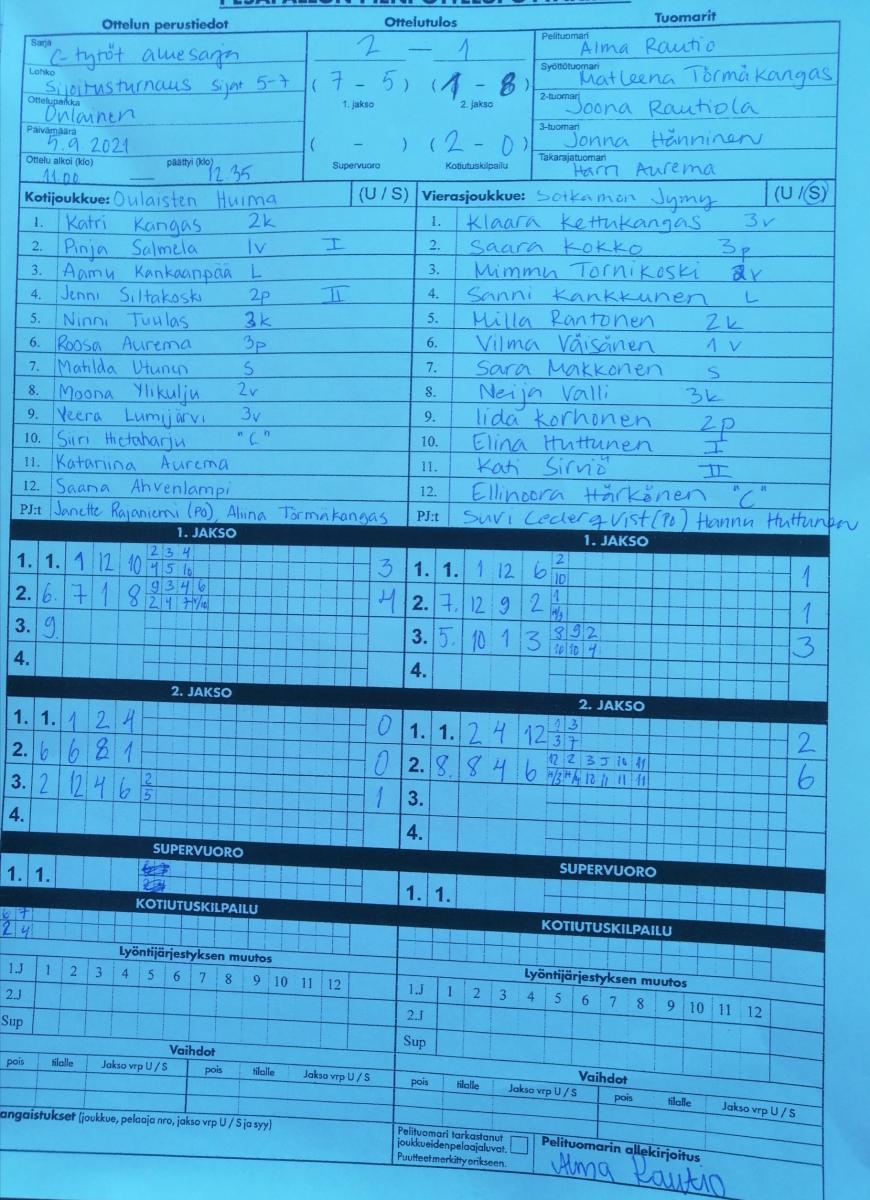 Ottelun perustiedot
Ottelutulos
Tuomarit
Sarja C-tytöt aluesarja
Lohko Sijoitusturnaus sijat 5-7
Ottelupaikka Oulainen
Päivämäärä 5.9.2021
Ottelu alkoi (klo) 11.00 — päättyi (klo) 12.35
2 — 1
(7 - 5) (1 - 8)
1. jakso 2. jakso
( - ) (2 - 0)
Supervuoro Kotiutuskilpailu
Pelituomari Alma Rautio
Syöttötuomari Matleena Törmäkangas
2-tuomari Joona Rautiola
3-tuomari Jonna Hänninen
Takarajatuomari Harri Aurema
Kotijoukkue: Oulaisten Huima (U / S)
1. Katri Kangas 2k
2. Pinja Salmela 1v I
3. Aamu Kankaanpää L
4. Jenni Siltakoski 2p II
5. Ninni Tuulas 3k
6. Roosa Aurema 3p
7. Matilda Utunen S
8. Moona Ylikulju 2v
9. Veera Lumijärvi 3v
10. Siiri Hietaharju "C"
11. Katariina Aurema
12. Saana Ahvenlampi
PJ:t Janette Rajaniemi (PO), Aliina Törmäkangas
Vierasjoukkue: Sotkamon Jymy (U / S)
1. Klaara Kettukangas 3v
2. Saara Kokko 3p
3. Mimmu Tornikoski 2v
4. Sanni Kankkunen L
5. Milla Rantonen 2k
6. Vilma Väisänen 1v
7. Sara Makkonen S
8. Neija Valli 3k
9. Iida Korhonen 2p
10. Elina Huttunen I
11. Kati Sirviö II
12. Ellinoora Härkönen "C"
PJ:t Suvi Cederqvist (PO) Hannu Huttunen
1. JAKSO
1. 1. 1 12 10 2 3 4 3
4 5 10
2. 6. 7 1 8 9 3 4 6 4
2 4 7 4/10
3. 9.
4.
1. JAKSO
1. 1. 1 12 6 2 1
10
2. 7. 12 9 2 1 1
3. 5. 10 1 3 8 9 2 3
10 10 4
4.
2. JAKSO
1. 1. 1 2 4 0
2. 6 6 8 1 0
3. 2 12 4 6 2 1
5
4.
2. JAKSO
1. 1. 2 4 12 1 3 2
3 7
2. 8. 8 4 6 12 2 3 5 10 11 6
12 11 11 11
3.
4.
SUPERVUORO
1. 1.
SUPERVUORO
1. 1.
KOTIUTUSKILPAILU
6 7
2 4
KOTIUTUSKILPAILU
Lyöntijärjestyksen muutos
1.J 1 2 3 4 5 6 7 8 9 10 11 12
2.J
Sup
Lyöntijärjestyksen muutos
1.J 1 2 3 4 5 6 7 8 9 10 11 12
2.J
Sup
Vaihdot
pois tilalle Jakso vrp U / S pois tilalle Jakso vrp U / S
Vaihdot
pois tilalle Jakso vrp U / S pois tilalle Jakso vrp U / S
angaistukset (joukkue, pelaaja nro, jakso vrp U / S ja syy)
Pelituomari tarkastanut
joukkueidenpelaajaluvat.
Puutteet merkitty erikseen.
Pelituomarin allekirjoitus
Alma Rautio